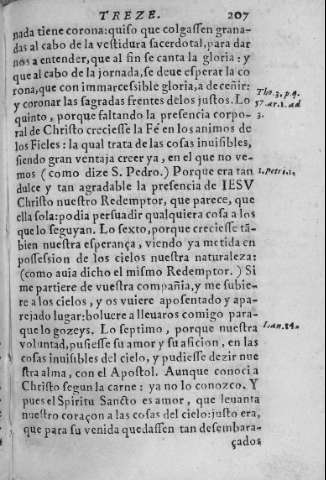 TREZE. 207
nada tiene corona: quiso que colgassen grana-
das al cabo de la vestidura sacerdotal, para dar
nos a entender, que al fin se canta la gloria: y
que al cabo de la jornada, se deue esperar la co
rona, que con immarcessible gloria, a de ceñir:
y coronar las sagradas frentes de los justos. Lo
quinto, porque faltando la presencia corpo-
ral de Christo creciesse la Fé en los animos de
los Fieles: la qual trata de las cosas inuisibles,
siendo gran ventaja creer ya, en el que no ve-
mos (como dize S. Pedro.) Porque era tan
dulce y tan agradable la presencia de IESV
Christo nuestro Redemptor, que parece, que
ella sola: podia persuadir qualquiera cosa a los
que lo seguyan. Lo sexto, porque creciesse tã-
bien nuestra esperança, viendo ya metida en
possession de los cielos nuestra naturaleza:
(como auia dicho el mismo Redemptor.) Si
me partiere de vuestra compañia, y me subie-
re a los cielos, y os vuiere aposentado y apa-
rejado lugar: boluere a lleuaros comigo para-
que lo gozeys. Lo septimo, porque nuestra
voluntad, pusiesse su amor y su aficion, en las
cosas inuisibles del cielo, y pudiesse dezir nue
stra alma, con el Apostol. Aunque conoci a
Christo segun la carne: ya no lo conozco. Y
pues el Spiritu Sancto es amor, que leuanta
nuestro coraçon a las cosas del cielo: justo era,
que para su venida quedassen tan desembara-
çados
Tho. 3. p. q.
57. ar. 1. ad
3.
1. Petri. 1.
Ioan. 14.